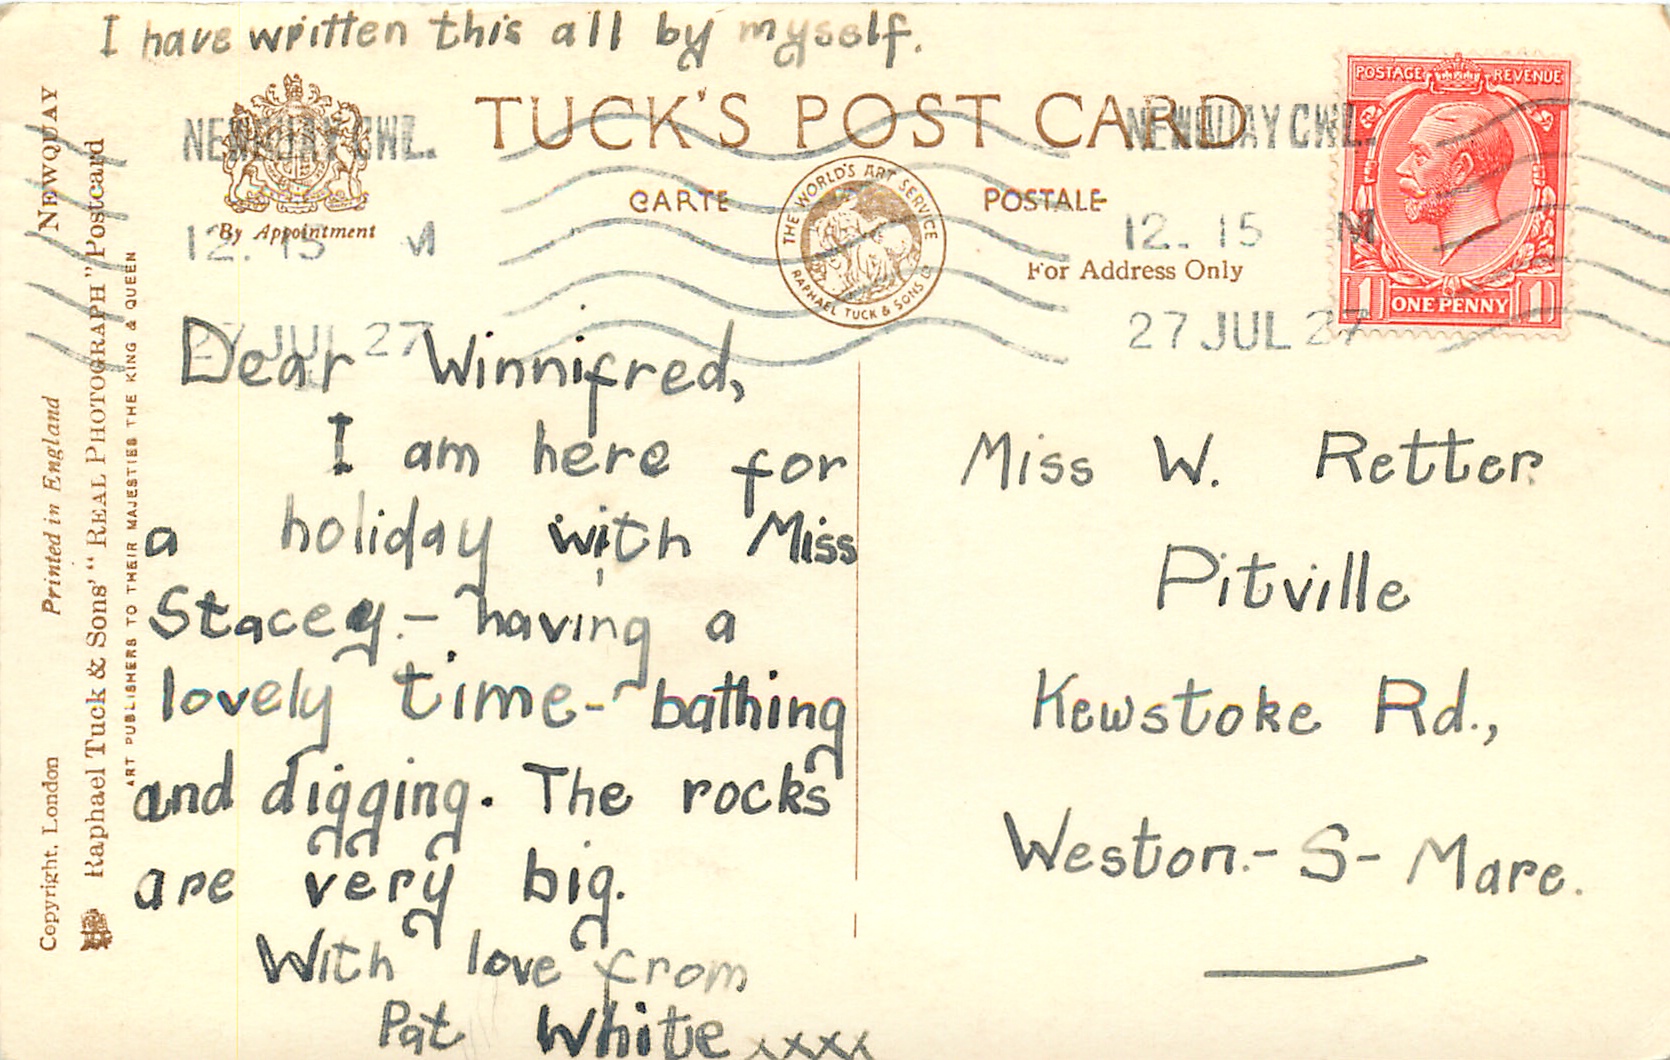 I have written this all by myself.
TUCK'S POST CARD
CARTE POSTALE
THE WORLD'S ART SERVICE
RAPHAEL TUCK & SONS LD
By Appointment
For Address Only
POSTAGE REVENUE
1 ONE PENNY 1
NEWQUAY CWL.
12. 15
27 JUL 27
NEWQUAY CWL.
12. 15
27 JUL 27
NEWQUAY
Printed in England
Copyright, London
Raphael Tuck & Sons' "REAL PHOTOGRAPH" Postcard
ART PUBLISHERS TO THEIR MAJESTIES THE KING & QUEEN
Dear Winnifred,
I am here for
a holiday with Miss
Stacey.- having a
lovely time- bathing
and digging. The rocks
are very big.
With love from
Pat White xxxx
Miss W. Retter
Pitville
Kewstoke Rd.,
Weston.- S- Mare.